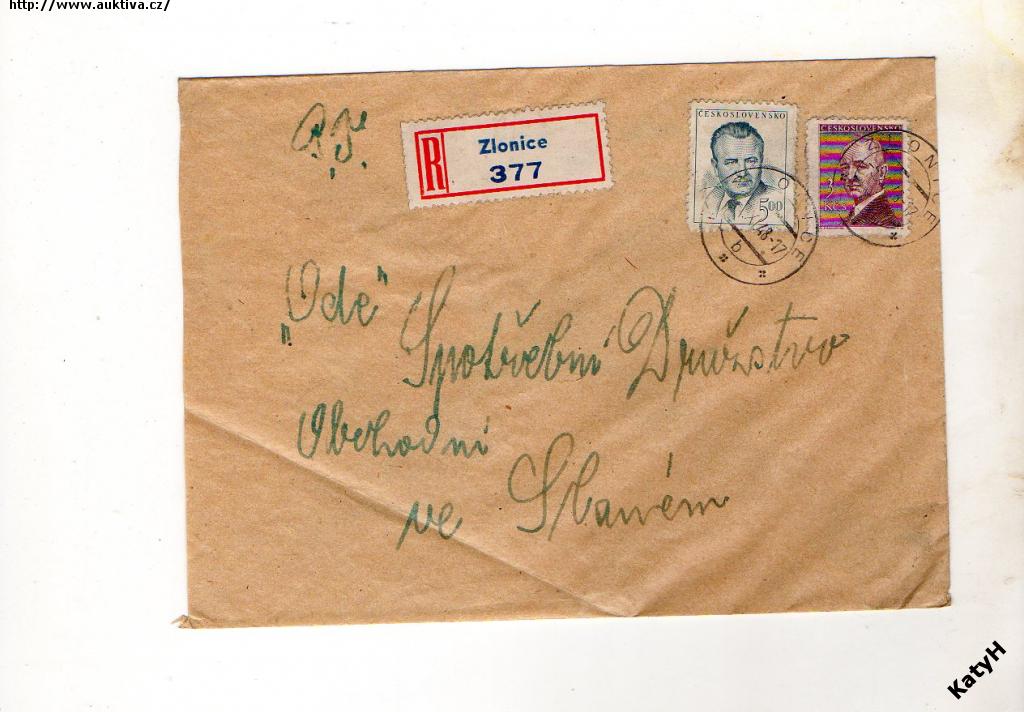 http://www.auktiva.cz/
R Zlonice
377
ČESKOSLOVENSKO
5.00
ČESKOSLOVENSKO
3
KČS
ZLONICE
48-17
b
"Ode"
Spotřební Družstvo
Obchodní
ve Slaném
KatyH